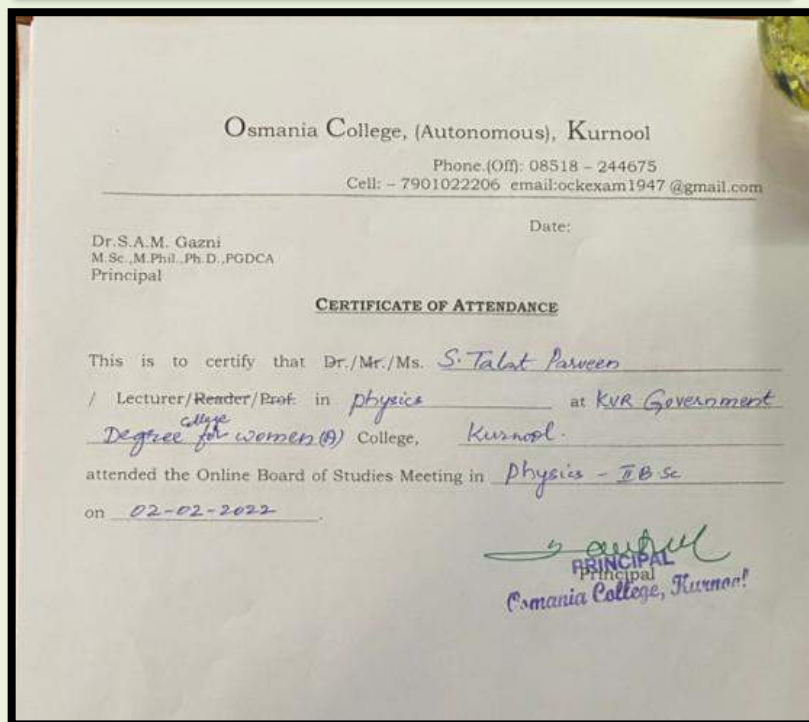 Osmania College, (Autonomous), Kurnool
Phone.(Off): 08518 – 244675
Cell: – 7901022206 email:ockexam1947 @gmail.com
Date:
Dr.S.A.M. Gazni
M.Sc.,M.Phil.,Ph.D.,PGDCA
Principal
CERTIFICATE OF ATTENDANCE
This is to certify that Dr./Mr./Ms. S. Talat Parveen
/ Lecturer/Reader/Prof. in physics at KVR Government
Degree college for women (A) College, Kurnool.
attended the Online Board of Studies Meeting in Physics - II B.Sc
on 02-02-2022.
PRINCIPAL
Principal
Osmania College, Kurnool